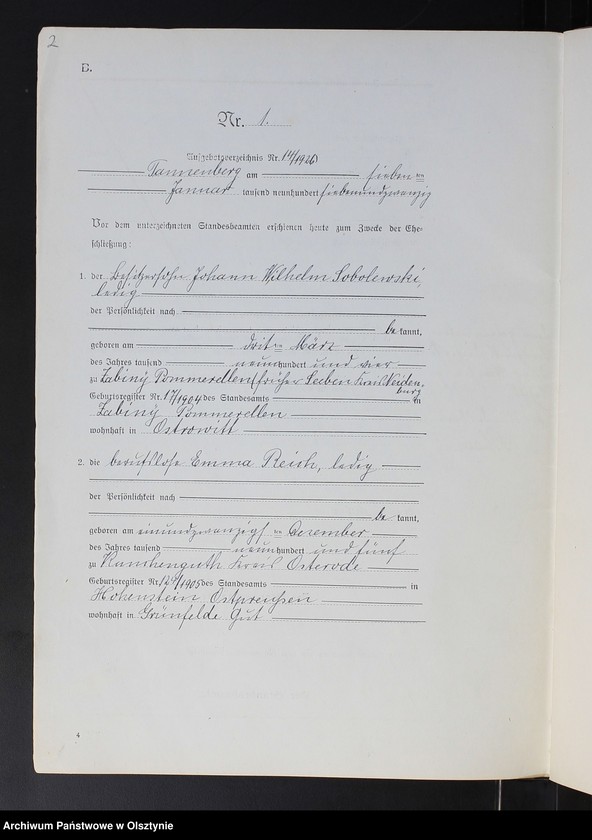 2
B.
Nr. 1.
Aufgebotsverzeichnis Nr. 14/1926
Tannenberg am sieben ten
Januar tausend neunhundert siebenundzwanzig
Vor dem unterzeichneten Standesbeamten erschienen heute zum Zwecke der Ehe-
schließung:
1. der Besitzersohn Johann Wilhelm Sobolewski,
ledig
der Persönlichkeit nach
be kannt,
geboren am dritten März
des Jahres tausend neunhundert und vier
zu Zabiny Pommerellen (früher Seeben Kreis Neiden-
burg
Geburtsregister Nr. 17/1904 des Standesamts in
Zabiny Pommerellen
wohnhaft in Ostrowitt
2. die berufslose Emma Reich, ledig
der Persönlichkeit nach
be kannt,
geboren am einundzwanzigsten Dezember
des Jahres tausend neunhundert und fünf
zu Kunchenguth Kreis Osterode
Geburtsregister Nr. /1905 des Standesamts in
Hohenstein Ostpreußen
wohnhaft in Grünfelde Gut
4
Archiwum Państwowe w Olsztynie